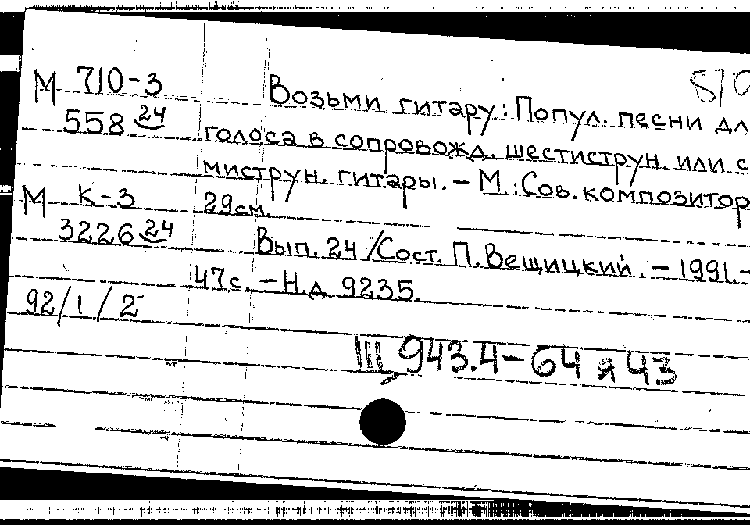 М 710-3
558 24
Возьми гитару: Попул. песни дл
голоса в сопровожд. шестиструн. или с
миструн. гитары. – М.: Сов. композитор
29см.
М К-3
3226 24
Вып. 24 / Сост. П. Вещицкий. – 1991. –
47с. – Н.д. 9235.
92/1/2
III 943.4-64 я 43